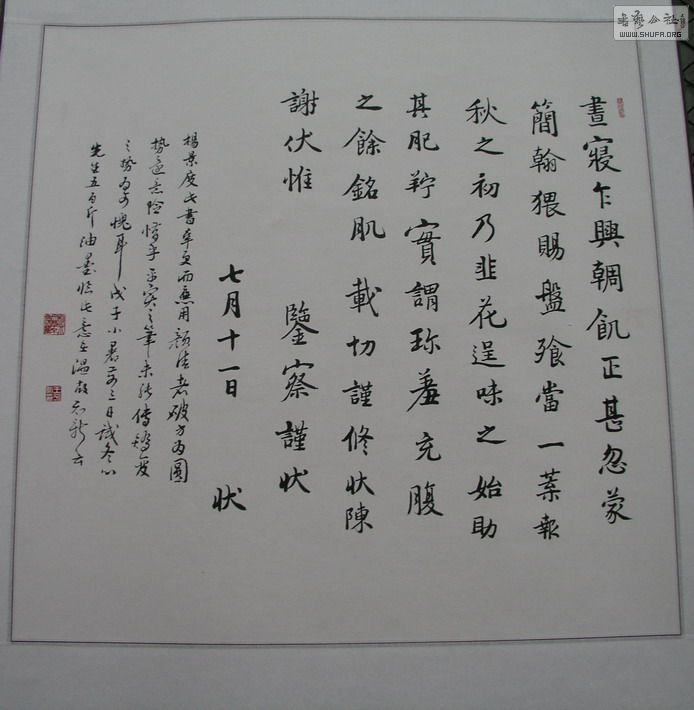 書藝公社
WWW.SHUFA.ORG
晝寢乍興輖飢正甚忽蒙
簡翰猥賜盤飧當一葉報
秋之初乃韭花逞味之始助
其肥羜實謂珍羞充腹
之餘銘肌載切謹修状陳
謝伏惟 鑒察謹状
七月十一日
状
楊景度此書 而兼用顏法者破方為圓
勢 險 乎平實之筆未能傳
之勢為可愧耳戊子小暑前三日試冬心
先生五百斤油墨臨此意在溫故知新云